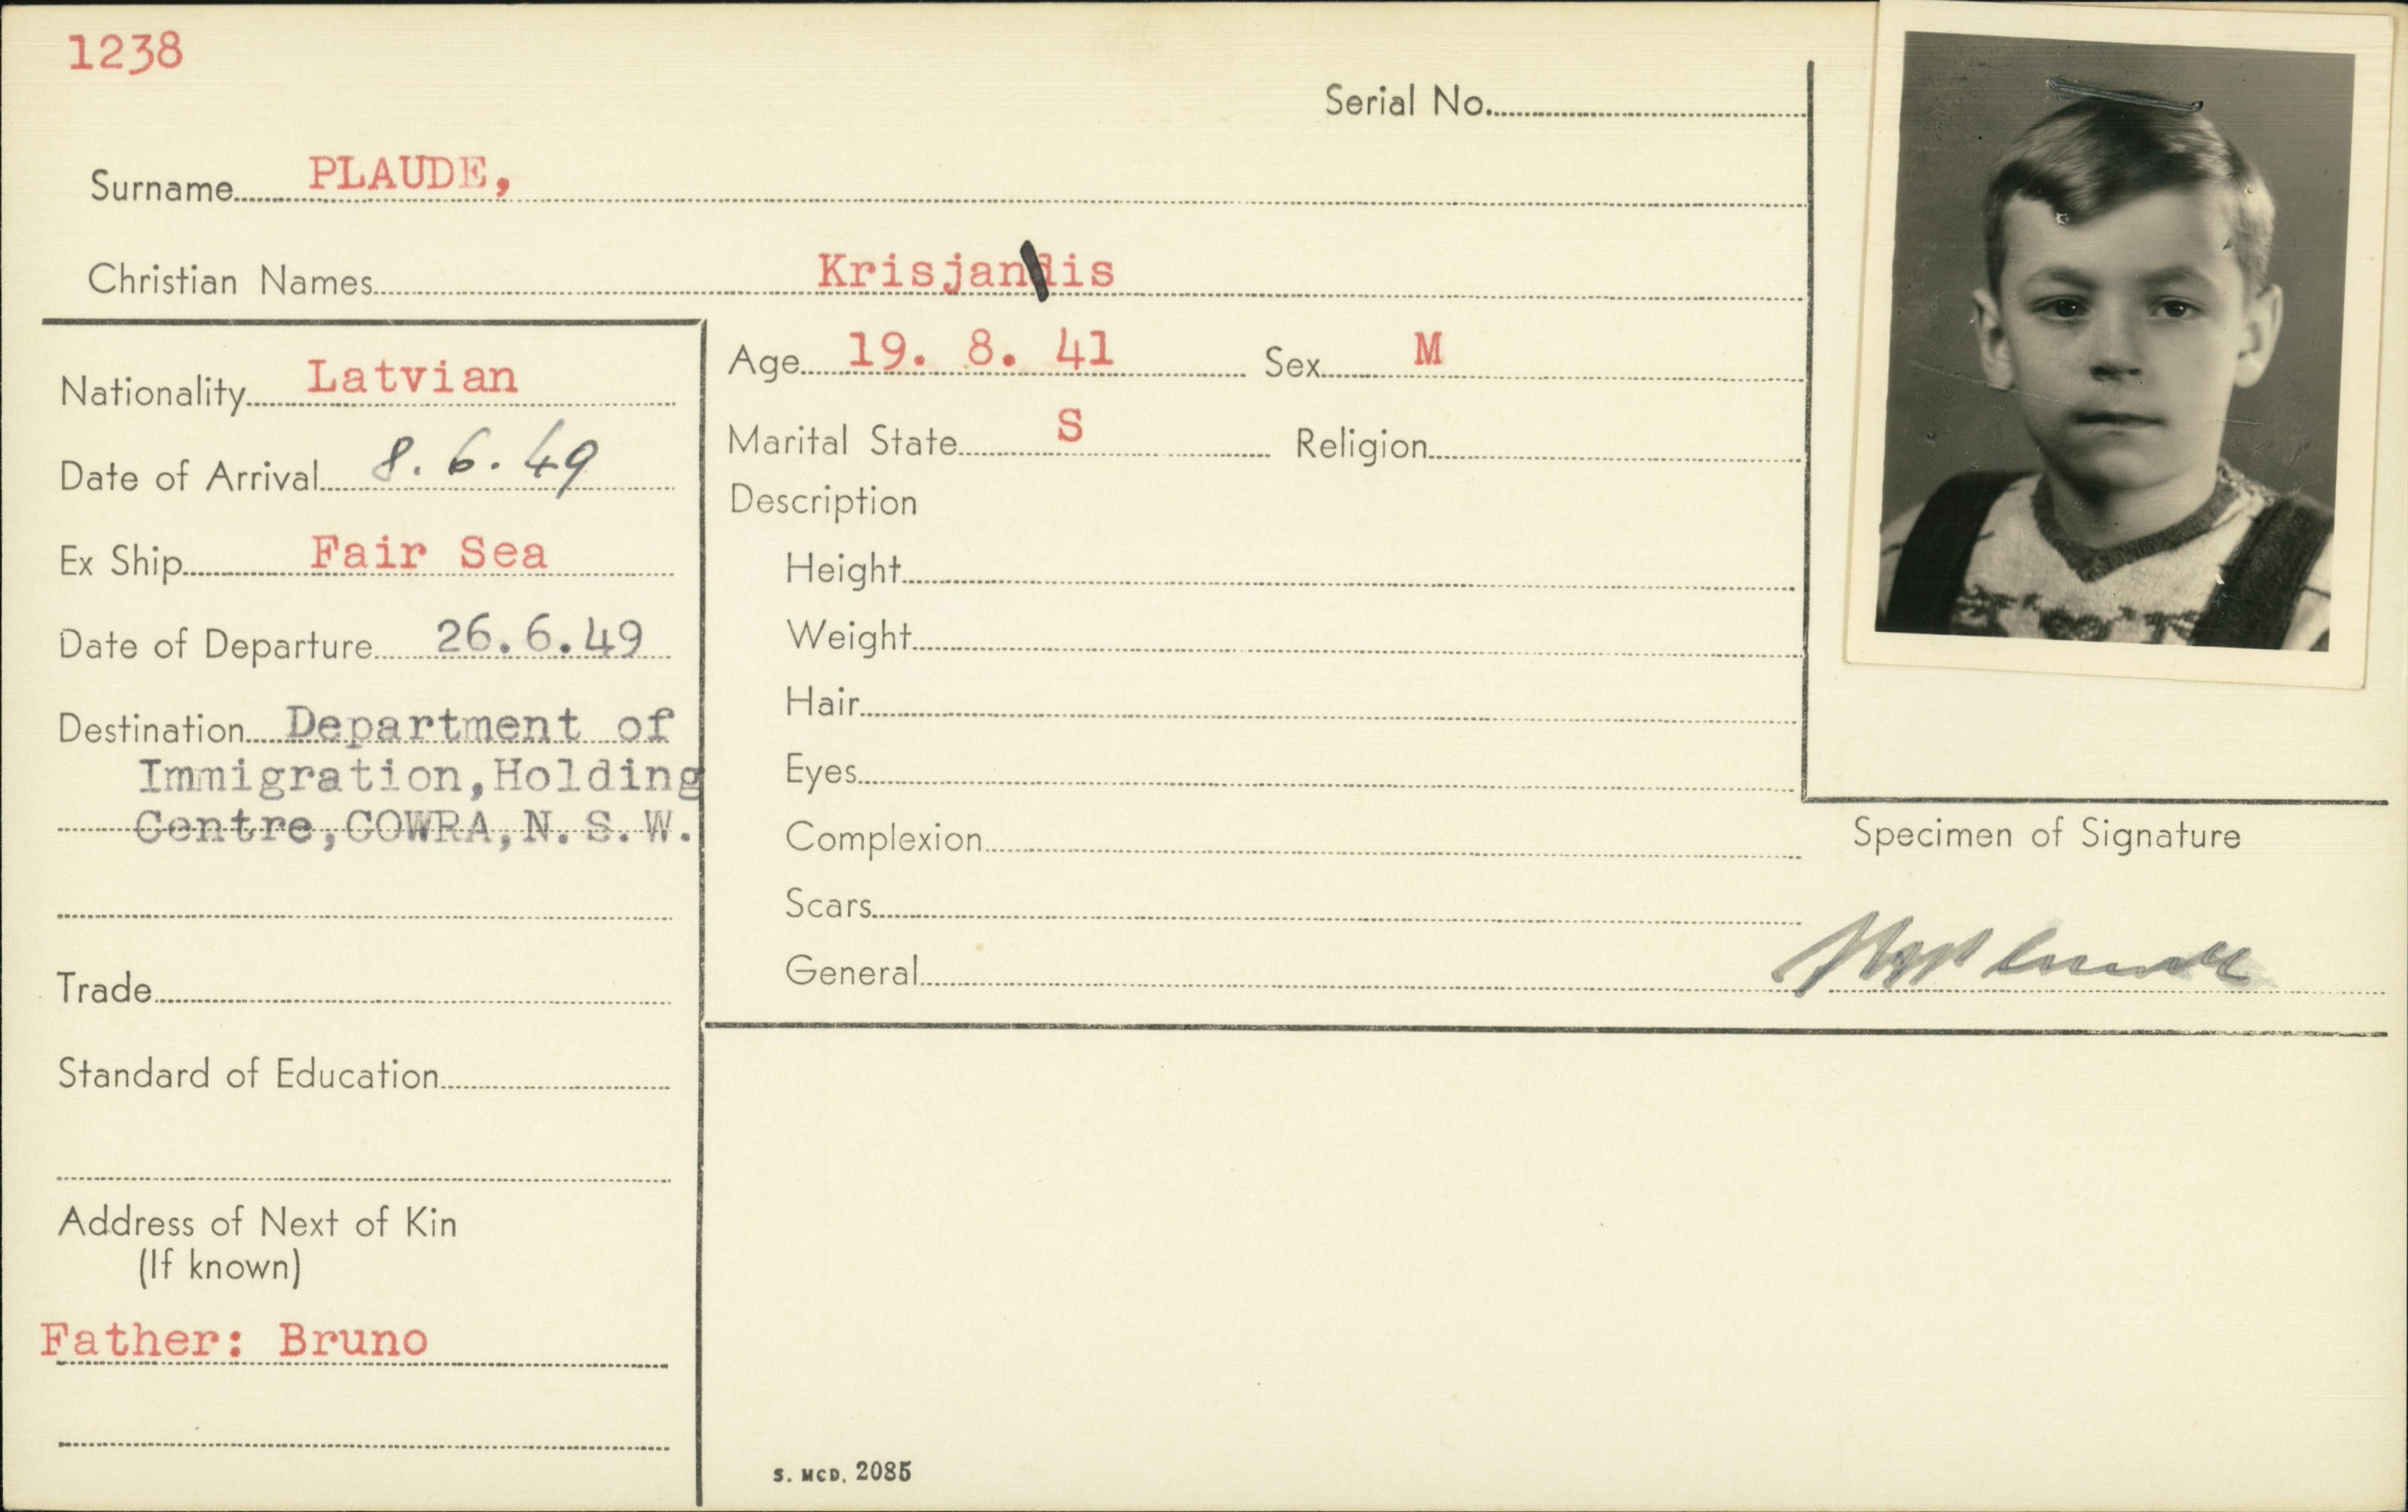 1238
Serial No.
Surname PLAUDE,
Christian Names Krisjandis
Nationality Latvian
Date of Arrival 8. 6. 49
Ex Ship Fair Sea
Date of Departure 26.6.49
Destination Department of
Immigration,Holding
Centre,COWRA,N.S.W.
Trade
Standard of Education
Address of Next of Kin
(If known)
Father: Bruno
Age 19. 8. 41 Sex M
Marital State S Religion
Description
Height
Weight
Hair
Eyes
Complexion
Scars
General
Specimen of Signature
S. MCD. 2085